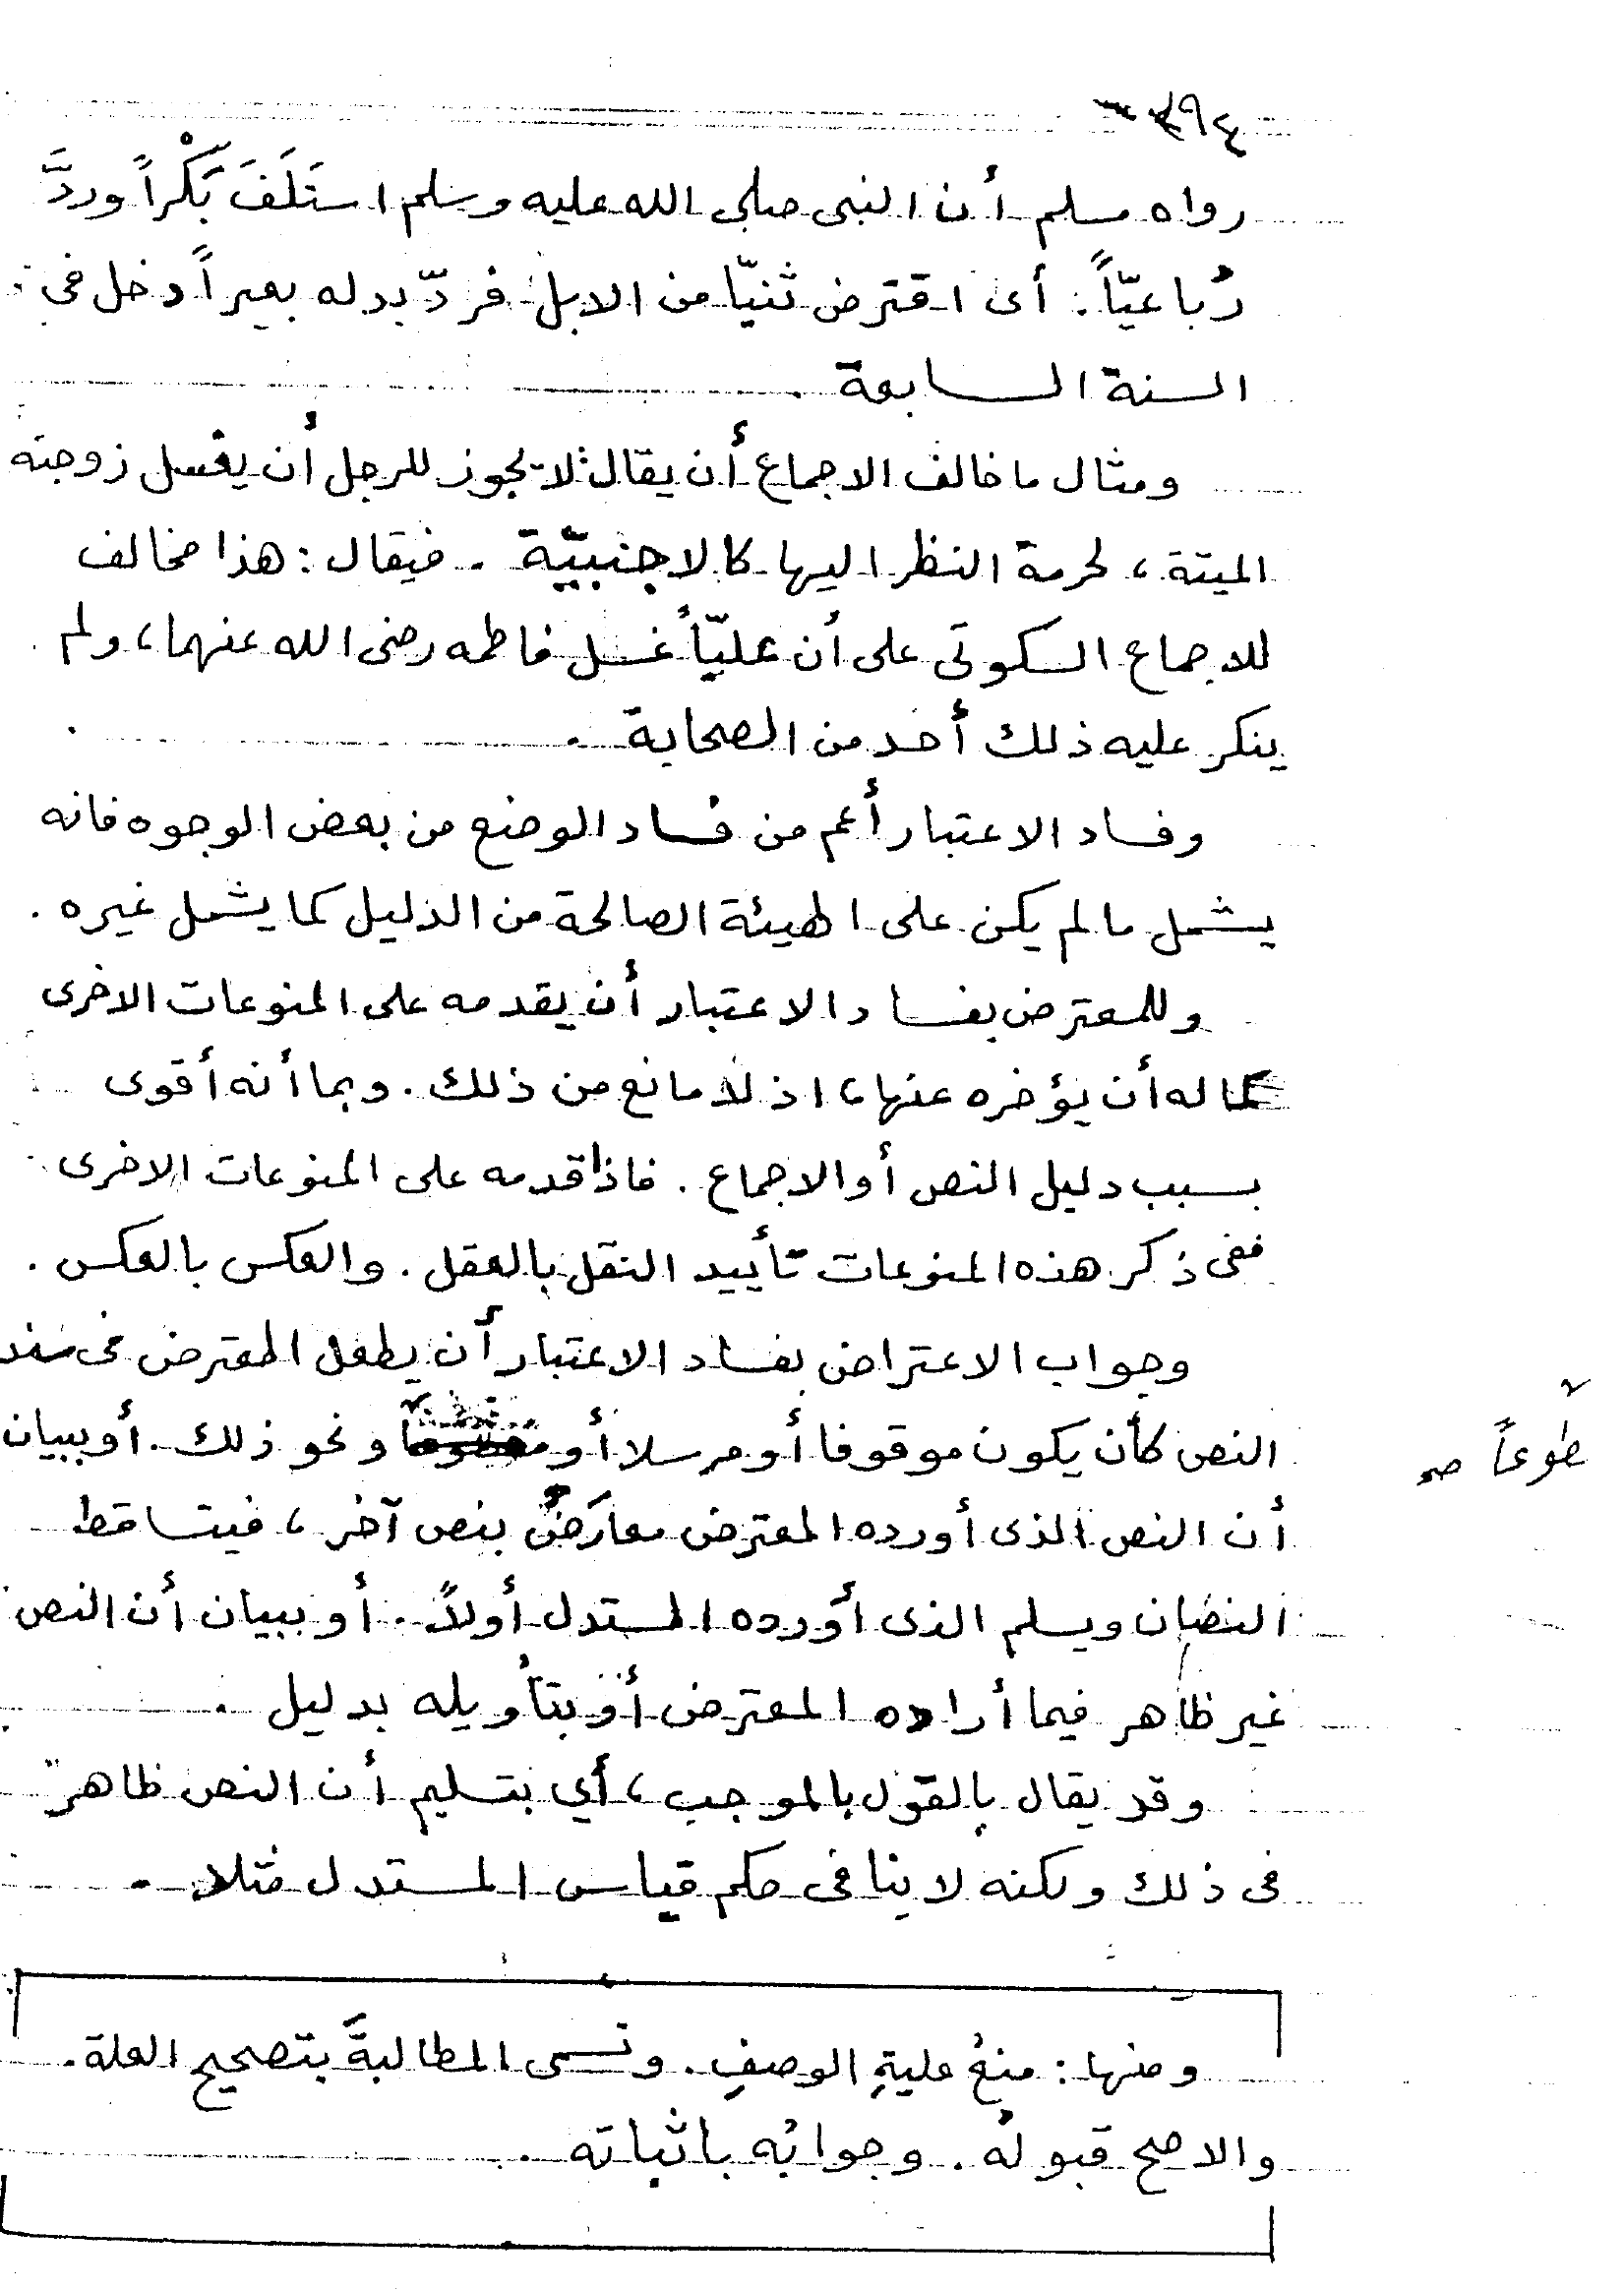 رواه مسلم أن النبى صلى الله عليه وسلم استَلَفَ بَكْراً وردَّ
رُباعيّاً: أى اقترض ثنيّا من الابل فردّ بدله بعيراً دخل في
السنة السابعة .
ومثال ما خالف الاجماع أن يقال: لا يجوز للرجل أن يغسل زوجته
الميتة ، لحرمة النظر اليها كالاجنبيّة . فيقال : هذا مخالف
للاجماع السكوتى على أن عليّاً غسل فاطمه رضى الله عنهما ، ولم
ينكر عليه ذلك أحد من الصحابة .
وفساد الاعتبار أعم من فساد الوضع من بعض الوجوه فانه
يشمل ما لم يكن على الهيئة الصالحة من الدليل كما يشمل غيره .
وللمعترض بفساد الاعتبار أن يقدمه على المنوعات الاخرى
كما له أن يؤخره عنها ، اذ لا مانع من ذلك . وبما أنه أقوى
بسبب دليل النص أو الاجماع . فاذا قدمه على المنوعات الاخرى
ففى ذكر هذه المنوعات تأييد النقل بالعقل . والعكس بالعكس .
وجواب الاعتراض بفساد الاعتبار أن يطعن المعترض فى سند
النص كأن يكون موقوفا أو مرسلا أو ونحو ذلك . أو ببيان
طوعاً صح
أن النص الذى أورده المعترض معارَضٌ بنص آخر ، فيتساقط
النصان ويسلم الذى أورده المستدل أولاً . أو ببيان أن النص
غير ظاهر فيما أراده المعترض أو بتأويله بدليل .
وقد يقال بالقول بالموجب ، أي بتسليم أن النص ظاهر
فى ذلك ولكنه لا ينافى حكم قياس المستدل مثلا .
ومنها : منعُ عليةِ الوصفِ . وتسمى المطالبةَ بتصحيح العلة .
والاصح قبولُه . وجوابُه باثباته .